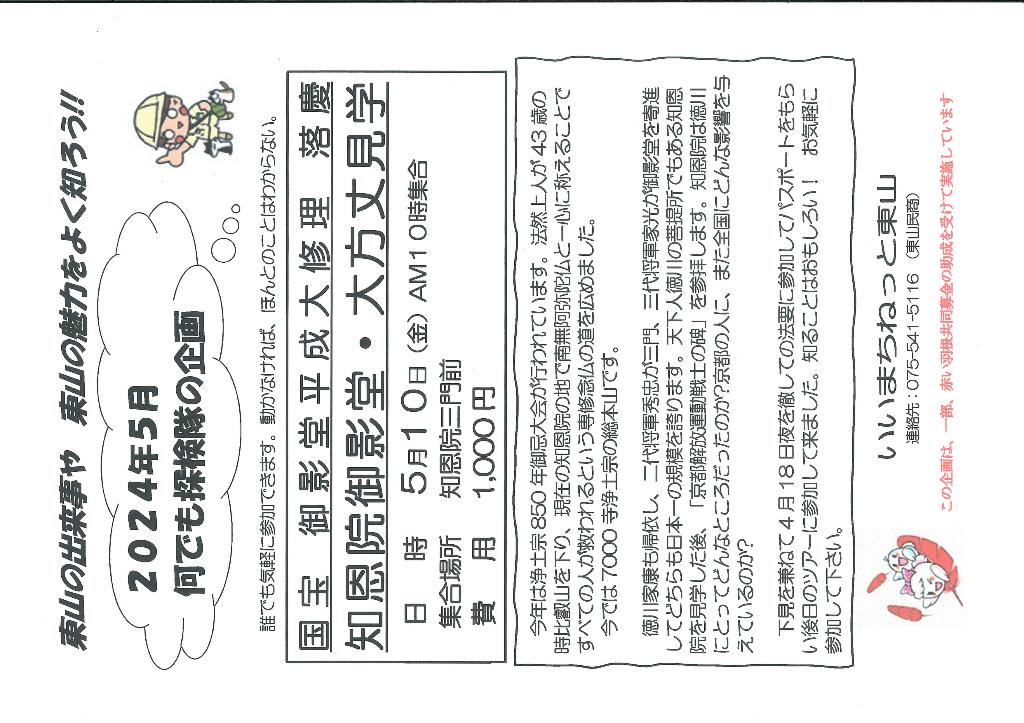 東山の出来事や 東山の魅力をよく知ろう!!
2024年5月
何でも探検隊の企画
誰でも気軽に参加できます。動かなければ、ほんとのことはわからない。
国宝 御影堂平成大修理 落慶
知恩院御影堂・大方丈見学
日 時 5月10日(金)AM10時集合
集合場所 知恩院三門前
費 用 1,000円
今年は浄土宗850年御忌大会が行われています。法然上人が43歳の
時比叡山を下り、現在の知恩院の地で南無阿弥陀仏と一心に称えることで
すべての人が救われるという専修念仏の道を広めました。
今では7000寺浄土宗の総本山です。
徳川家康も帰依し、二代将軍秀忠が三門、三代将軍家光が御影堂を寄進
してどちらも日本一の規模を誇ります。天下人徳川の菩提所でもある知恩
院を見学した後、「京都解放運動戦士の碑」を参拝します。知恩院は徳川
にとってどんなところだったのか?京都の人に、また全国にどんな影響を与
えているのか?
下見を兼ねて4月18日夜を徹しての法要に参加してパスポートをもら
い後日のツアーに参加して来ました。知ることはおもしろい! お気軽に
参加して下さい。
いいまちねっと東山
連絡先:075-541-5116(東山民商)
この企画は、一部、赤い羽根共同募金の助成を受けて実施しています